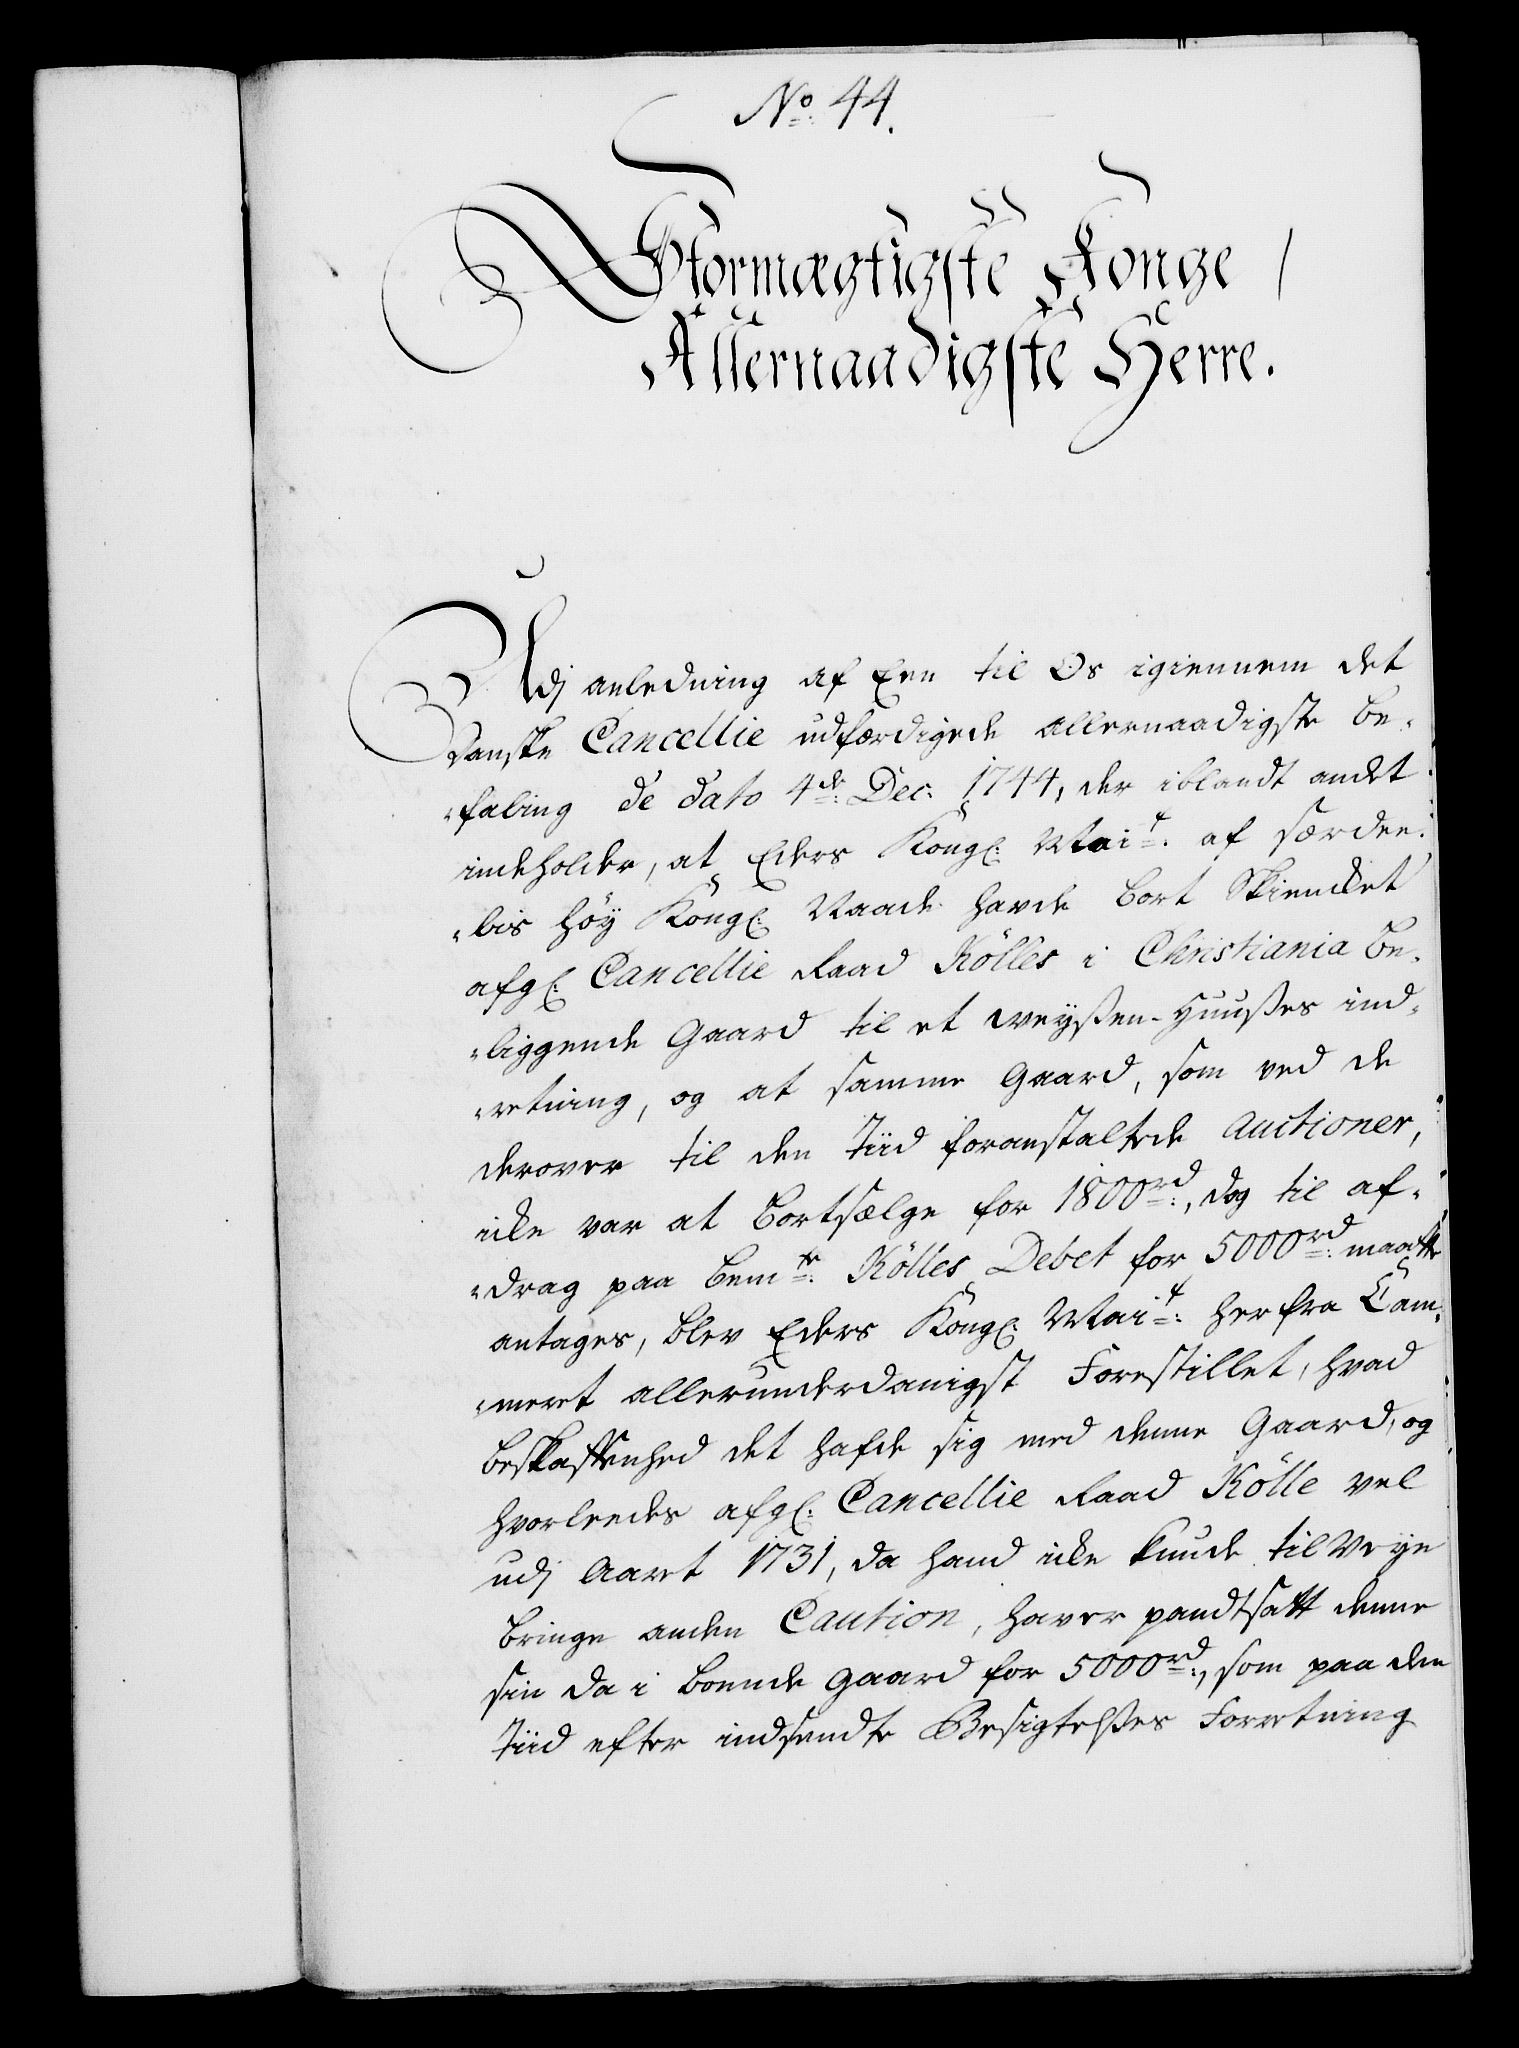 No: 44.
Stormægtigste Konge /
Allernaadigste Herre.
Udj anledning af Een til Os igiennem det
Danske Cancellie udfærdigede allernaadigste be-
-faling de dato 4de Dec: 1744, der iblandt andet
indeholder, at Eders Kongl: Mait: af særdee-
-lis höy Kongl: Naade havde bort Skiencket
afgl: Cancellie Raad Kölles i Christiania be-
-liggende Gaard til et Weyßen-Huußes ind-
-retning, og at samme Gaard, som ved de
derover til den Tiid foranstaltede Auctioner,
icke var at bortsælge for 1800rd:, dog til af-
-drag paa bemte: Kölles Debet for 5000rd: maatte
antages, blev Eders Kongl: Mait: herfra Cam-
-meret allerunderdanigst Forestillet, hvad
beskaffenhed det hafde sig med denne Gaard, og
hvorleedes afgl: Cancellie Raad Kölle vel
udj Aaret 1731, da hand icke kunde til Veye
bringe anden Caution, haver pandtsatt denne
sin da i boende Gaard for 5000rd:, som paa den
Tiid efter indsendte Besigtelßes Forretning